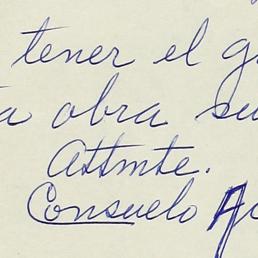 tener el
obra
Attmte.
Consuelo